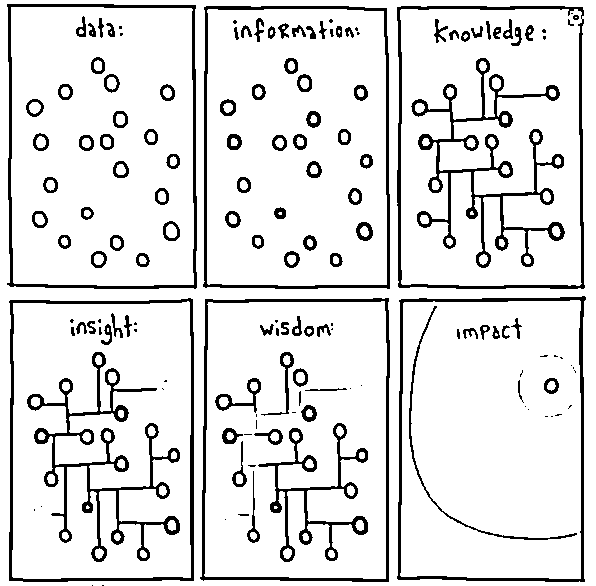 data:
information:
knowledge:
insight:
wisdom:
impact